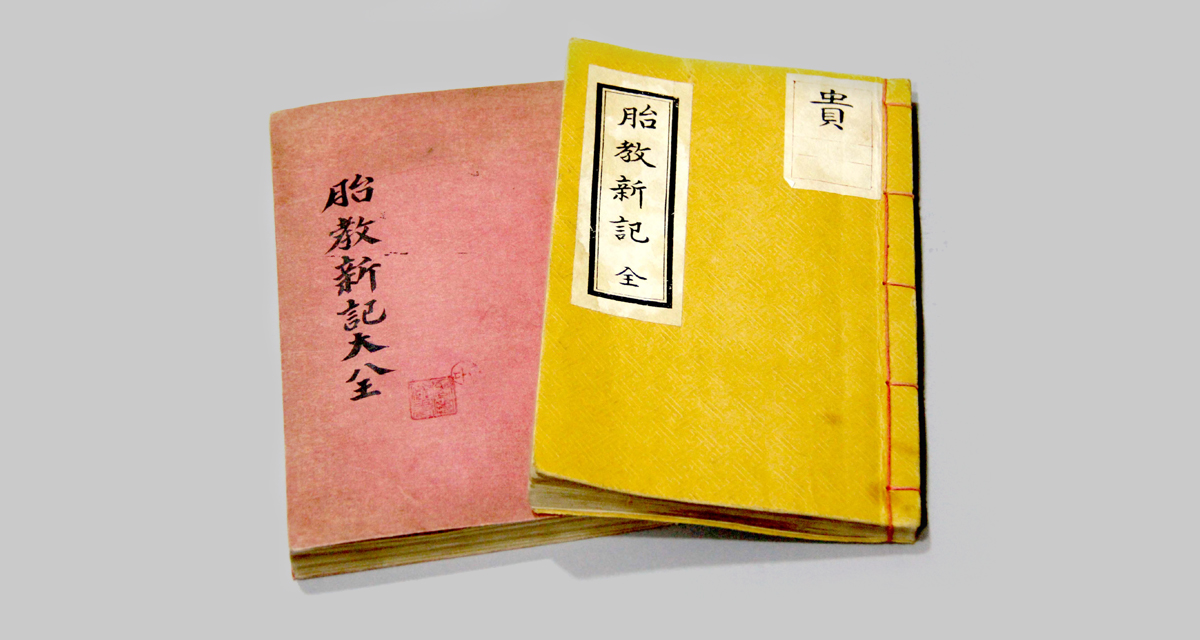 胎教新記大全
胎教新記 全
貴